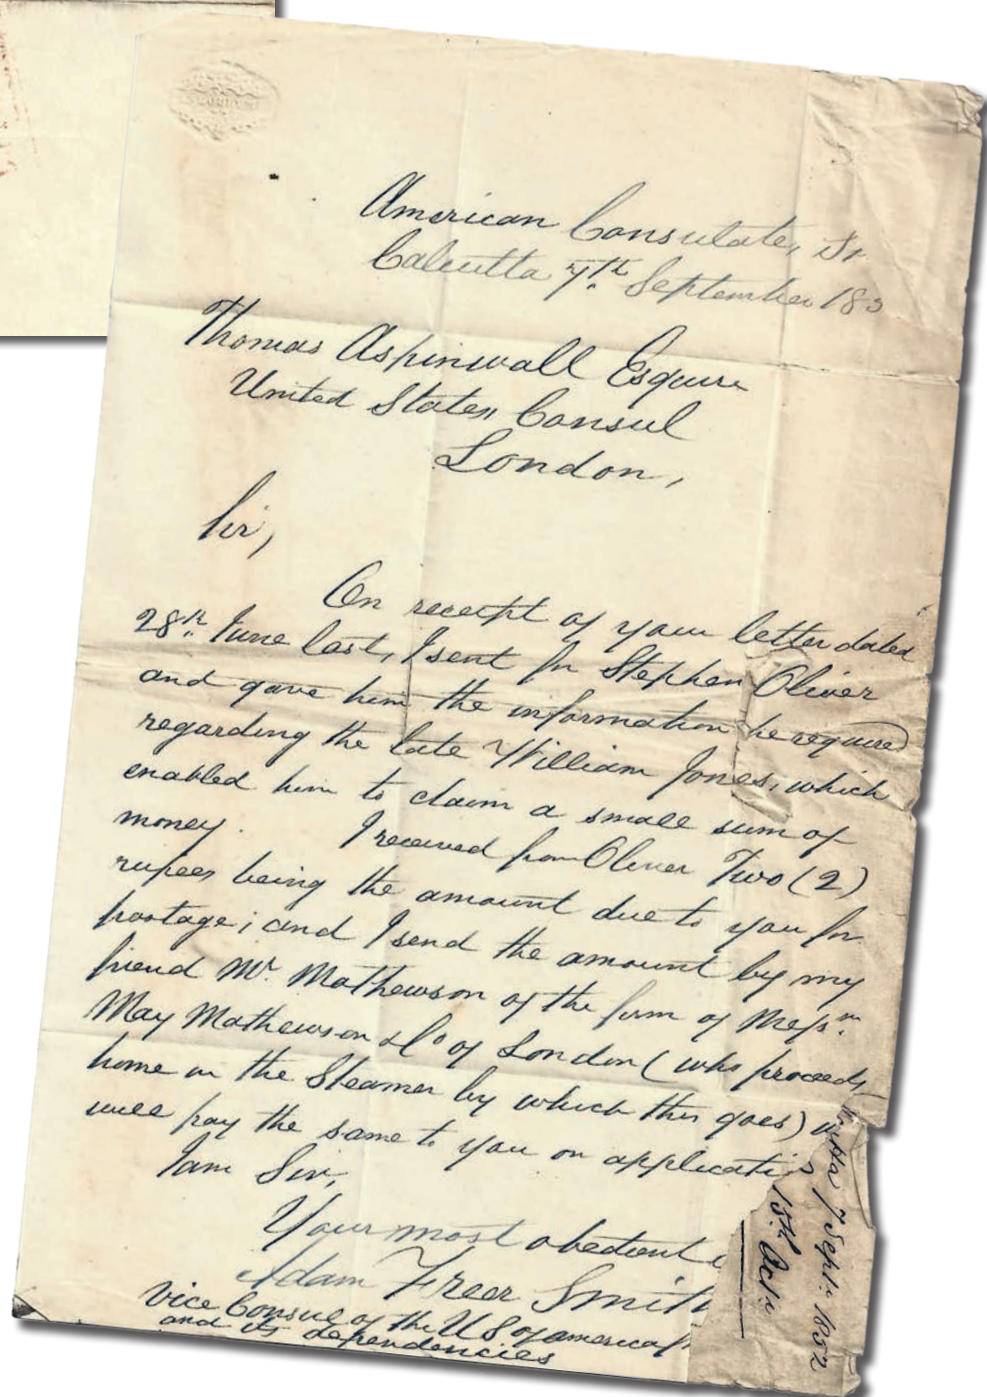 American Consulate,
Calcutta 7th September 18
Thomas Aspinwall Esquire
United States Consul
London,
Sir,
On receipt of your letter dated
28th June last, I sent for Stephen Oliver
and gave him the information he required
regarding the late William Jones, which
enabled him to claim a small sum of
money. I received from Oliver Two (2)
rupees being the amount due to you for
postage; and I send the amount by my
friend Mr. Mathewson of the firm of Messrs.
May Mathewson & Co of London (who proceeds
home on the Steamer by which this goes)
will pay the same to you on applicati
I am Sir,
Your most obedient
Adam Freer Smit
Vice Consul of the U S of america
and its dependencies
7 Sept: 1852
15th Octr